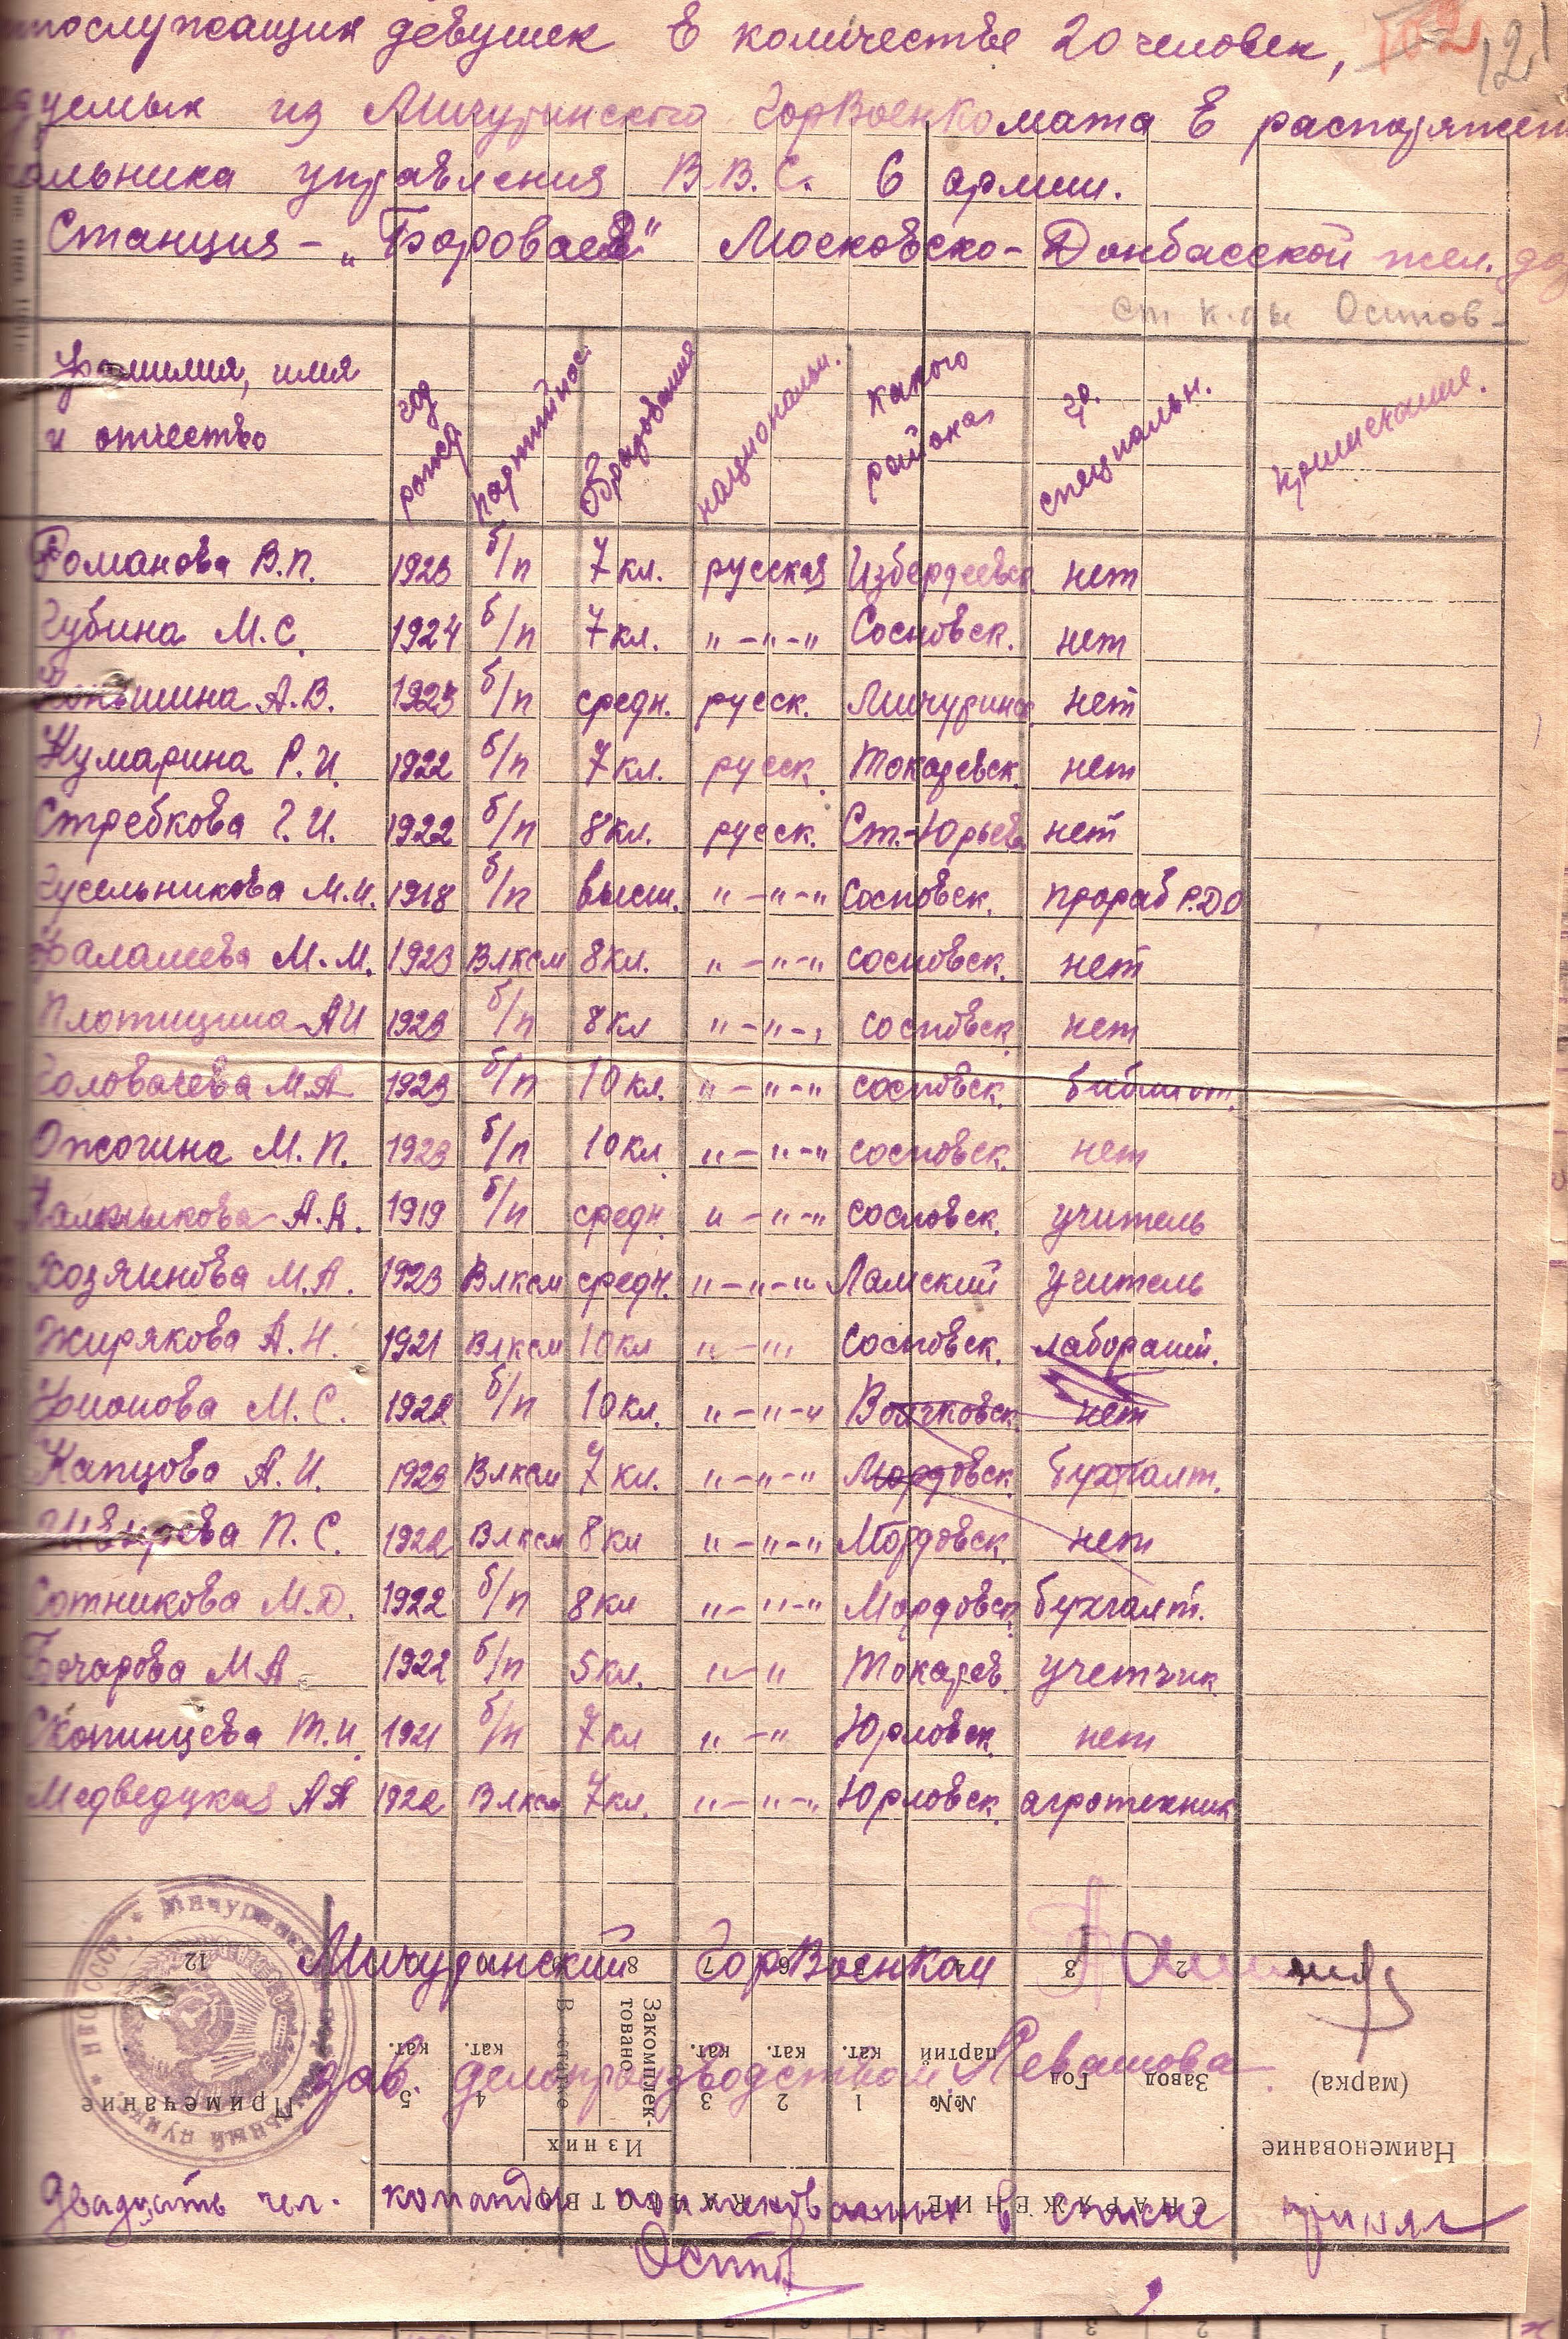 послужащих девушек в количестве 20 человек,
из Мичуринского ГорВоенкомата в распоряжен
альника управления В.В.С. 6 армии.
Станция – „Боровая" Московско-Донбасской жел. до
Фамилия, имя и отчество год рожд партийнос. Образование национальн. какого района гр. специальн. примечание.
Романова В.П. 1923 б/п 7 кл. русская Избердеевск. нет
Губина М.С. 1924 б/п 7 кл. „–„–„ Сосновск. нет
А.В. 1923 б/п средн. русск. Мичуринск. нет
Кумарина Р.И. 1922 б/п 7 кл. русск. Токаревск. нет
Стребкова Г.И. 1922 б/п 8 кл. русск. Ст.-Юрьев нет
Гусельникова М.И. 1918 б/п высш. „–„–„ Сосновск. прораб Р.Д.О
Фаламеева М.М. 1923 Влксм 8 кл. „–„–„ сосновск. нет
Плотицина А И 1923 б/п 8 кл „–„–„ сосновск. нет
Головачева М.А 1923 б/п 10 кл. „–„–„ сосновск. библиот.
Ожогина М.П. 1923 б/п 10 кл „–„–„ сосновск. нет
Калмыкова А.А. 1919 б/п средн. „–„–„ сосновск. учитель
Хозяинова М.А. 1923 Влксм средн. „–„–„ Ламский учитель
Жирякова А.Н. 1921 Влксм 10 кл „–„ Сосновск. лаборант.
Фионова М.С. 1922 б/п 10 кл. „–„–„ Волчковск. нет
Капцова А.И. 1923 Влксм 7 кл. „–„–„ Мордовск. бухгалт.
Шевырева П.С. 1922 Влксм 8 кл „–„–„ Мордовск. нет
Сотникова М.Д. 1922 б/п 8 кл „–„–„ Мордовск. бухгалт.
Бочарова М А 1922 б/п 5 кл. „–„ Токарев. учетчик
Скопинцева Т.И. 1921 б/п 7 кл „–„ Юрловск. нет
Медведицкая А А 1922 Влксм 7 кл. „–„–„ Юрловск. агротехник
Мичуринский ГорВоенком
Зав. делопроизводством Левашова
Двадцать чел. команды в списке принял
Примечание
Наименование (марка)
Завод
Год
№№ партий
1 кат.
2 кат.
3 кат.
Закомплектовано
Из них
4 кат.
5 кат.
СНАРЯЖЕНИЕ
КАЧЕСТВО